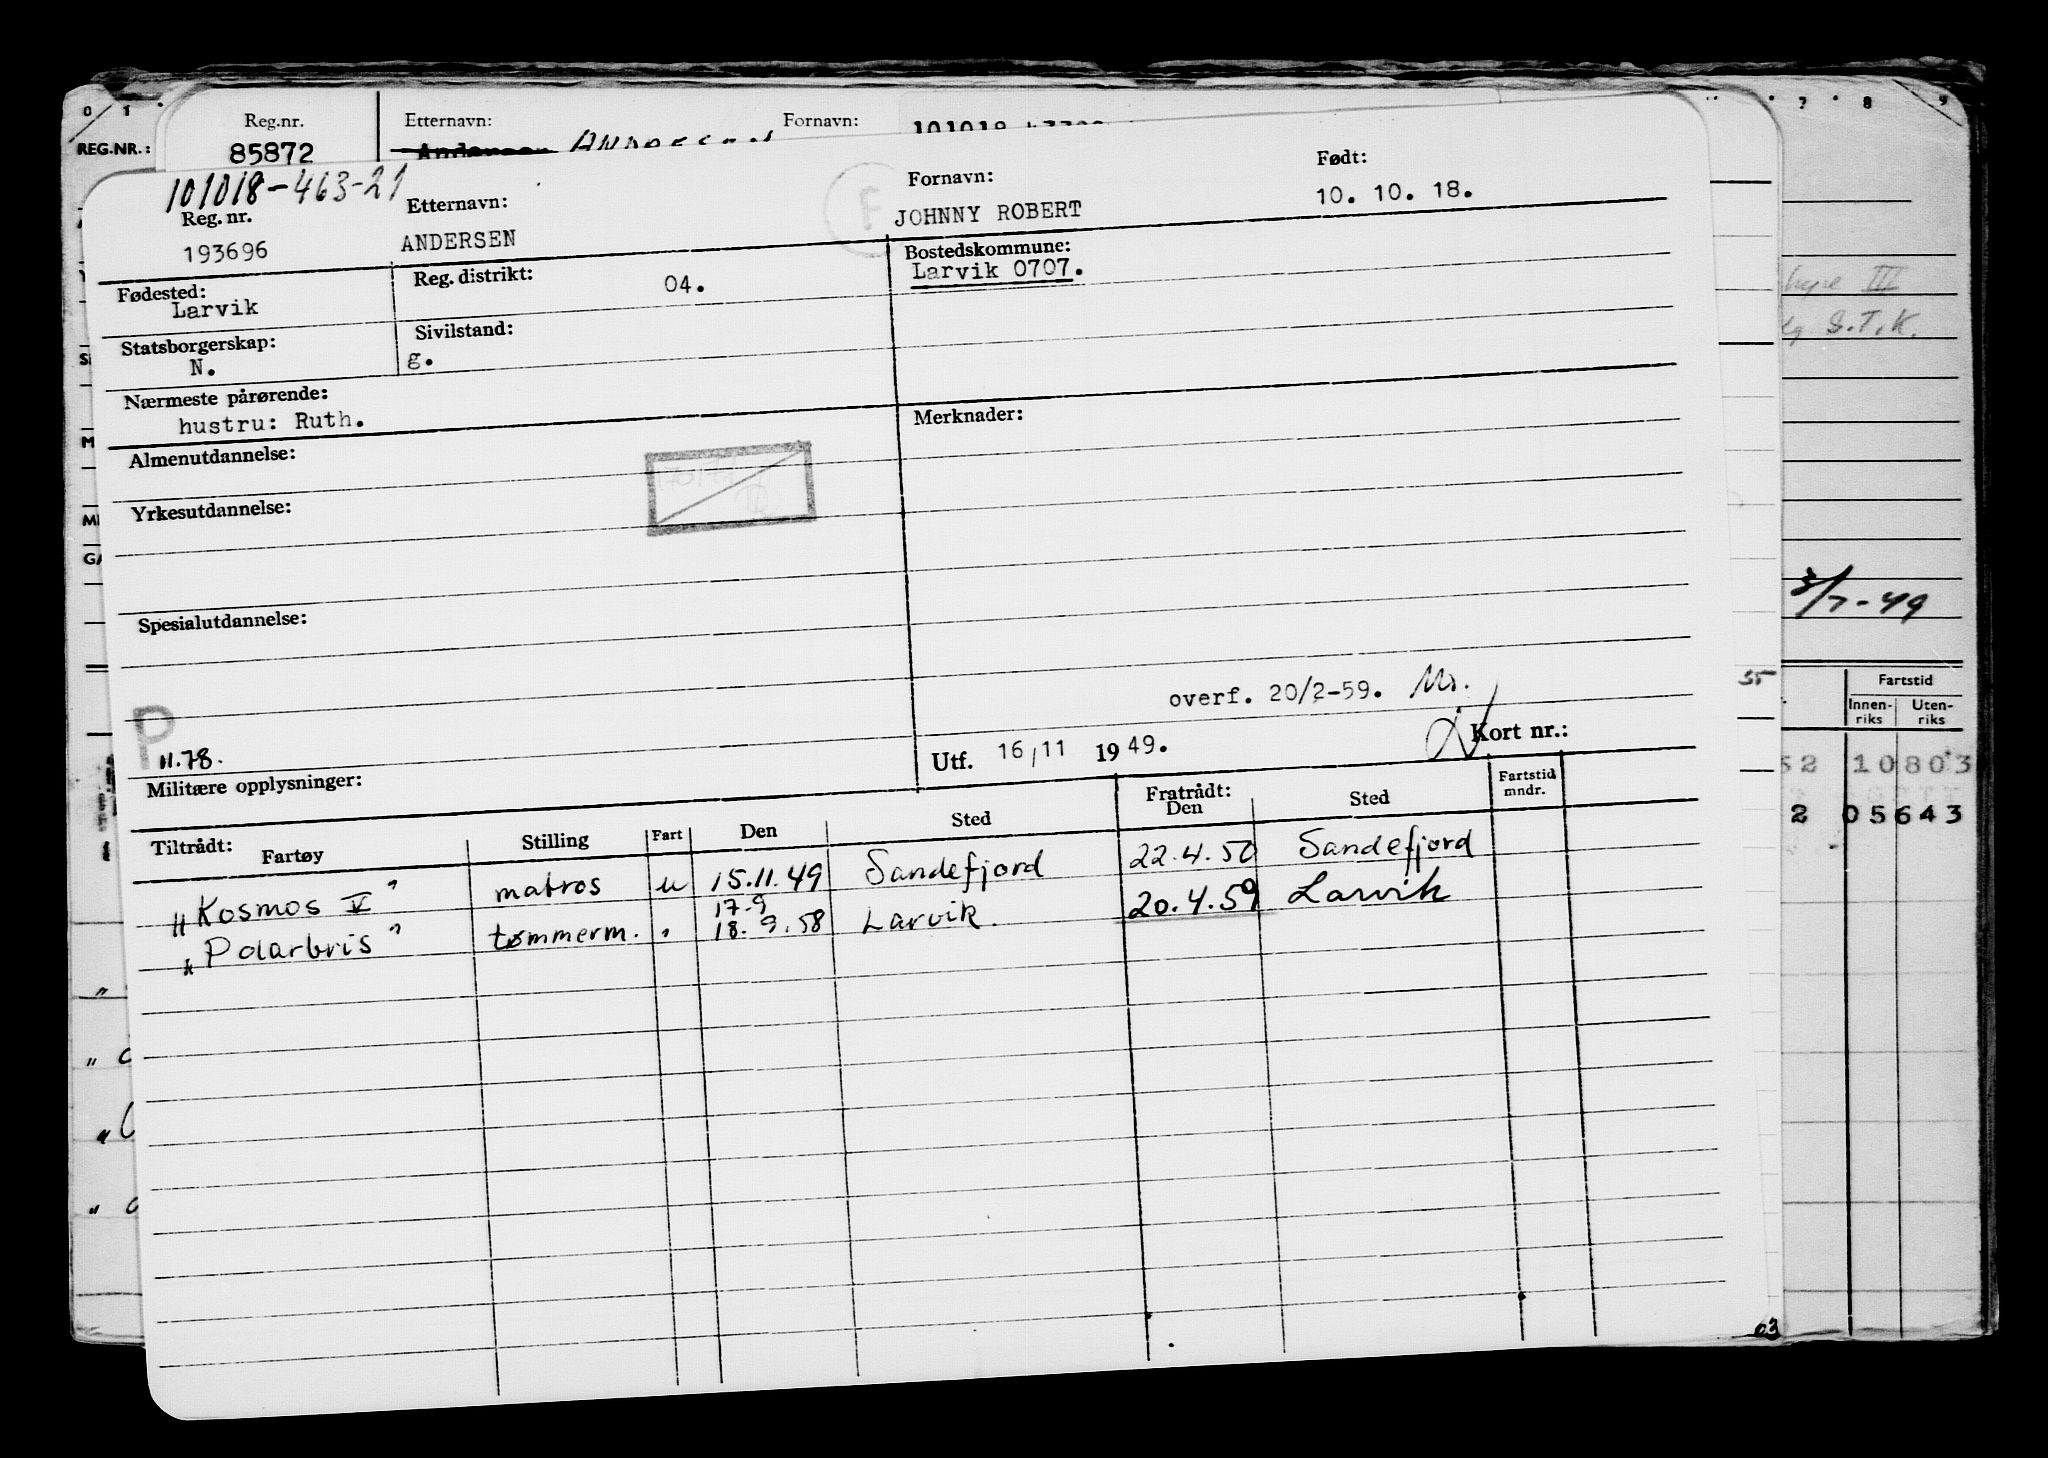 0 1 7 8 9
REG.NR.:
Reg.nr. Etternavn: Fornavn:
85872
101018-463-21
Reg. nr. Etternavn: Fornavn: Født:
193696 ANDERSEN F JOHNNY ROBERT 10. 10. 18.
Fødested: Reg. distrikt: Bostedskommune:
Larvik 04. Larvik 0707.
Statsborgerskap: Sivilstand:
N. g.
Nærmeste pårørende: Merknader:
hustru: Ruth.
Almenutdannelse:
Yrkesutdannelse:
Spesialutdannelse:
overf. 20/2-59.
P
11.78. Utf. 16/11 1949. Kort nr.:
Militære opplysninger:
Tiltrådt: Fartøy Stilling Fart Den Sted Fratrådt: Den Sted Fartstid mndr.
"Kosmos V" matros u 15.11.49 Sandefjord 22.4.50 Sandefjord
17.9
"Polarbris" tømmerm. " 18.9.58 Larvik. 20.4.59 Larvik
III
S.T.K.
3/7-49
55
Fartstid
Innen-riks Uten-riks
52 10803
2 05643
03